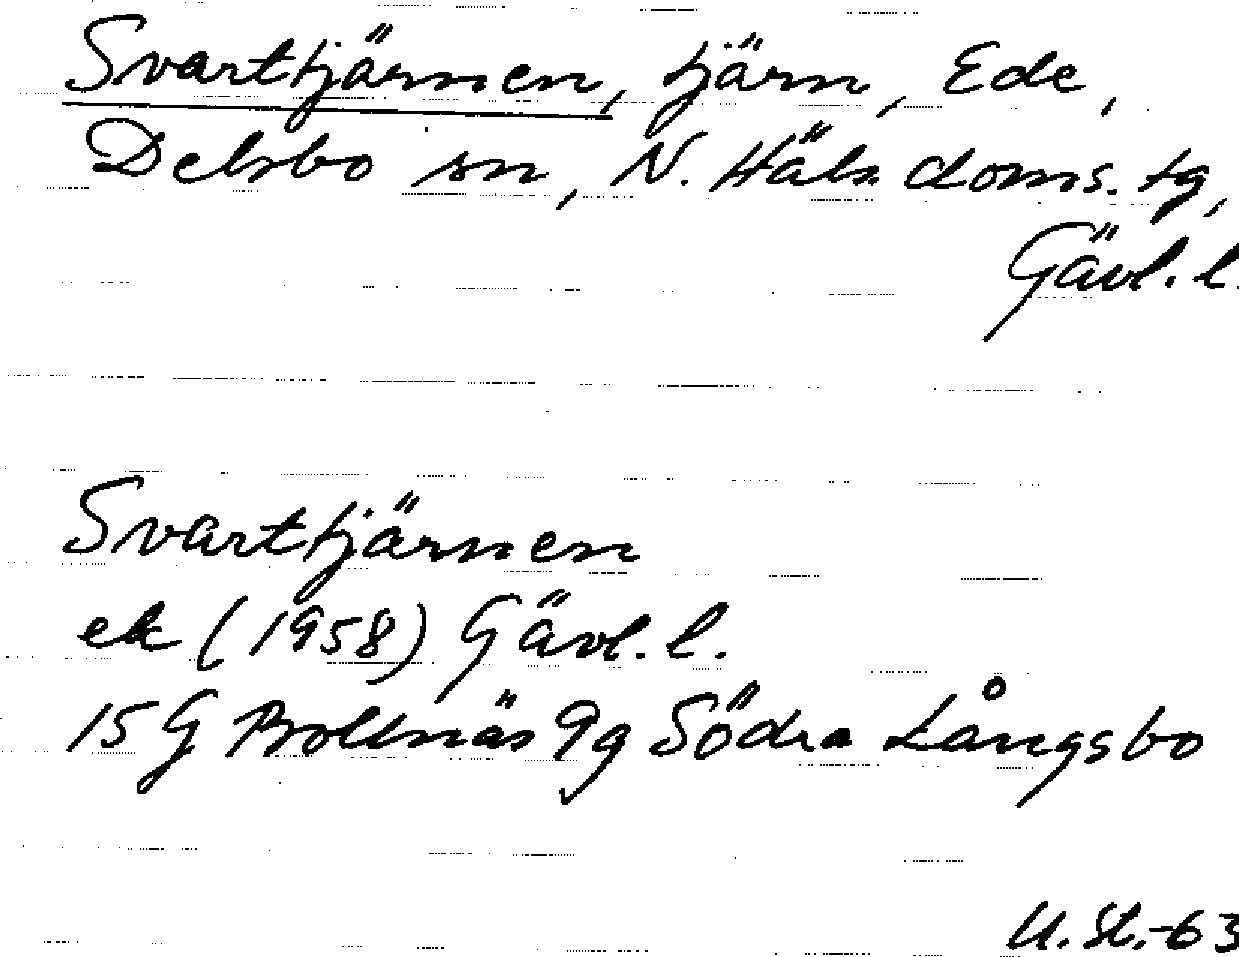 Svarttjärnen, tjärn, Ede,
Delsbo sn, N. Häls doms. tg,
Gävl. l.
Svarttjärnen
ek (1958) Gävl. l.
15 G Bollnäs 9g Södra Långsbo
U. St.-63